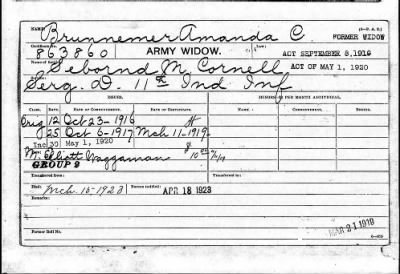 NAME: Brunnemer Amanda C. (3-P. A. D.)
FORMER WIDOW
Certificate No. 863860 ARMY WIDOW. Law: ACT SEPTEMBER 8, 1916
Name of Soldier: McCornell ACT OF MAY 1, 1920
Serg. D. 11th Ind Inf
ISSUES. MINORS PER MONTH ADDITIONAL.
CLASS. RATE. DATE OF COMMENCEMENT. DATE OF CERTIFICATE. NAME. COMMENCEMENT.
Orig 12 Oct 23-1916
25 Oct 6-1917 Mch 11-1919
Inc 30 May 1, 1920
M. Elliott Waggaman
GROUP 2
Transferred from: Transferred to:
Died: Mch. 15-1923 Bureau notified: APR 18 1923
Remarks:
Former Roll No. MAR 21 1919